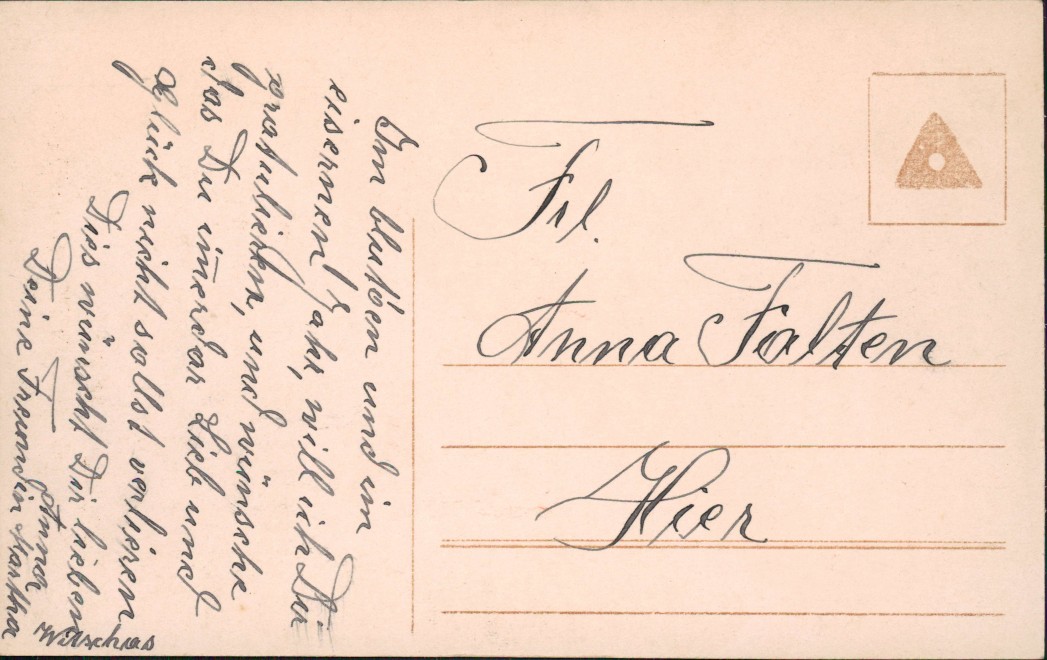 Im blutben und im
eisernen Jahr, will ich Dir
gratulieren, und wünsche
das Du imerdar Lieb und
Glück nicht sollst verlieren
Dies wünscht Dir lieben
Anna
Deine Freundin Martha
Witschas
Frl.
Anna Falten
Hier